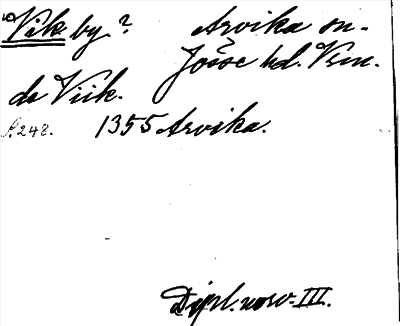 Vik by? Arvika sn.
Jösse hd. Vrm.
de Viik.
s. 248. 1355 Arvika.
Dipl. norv. III.